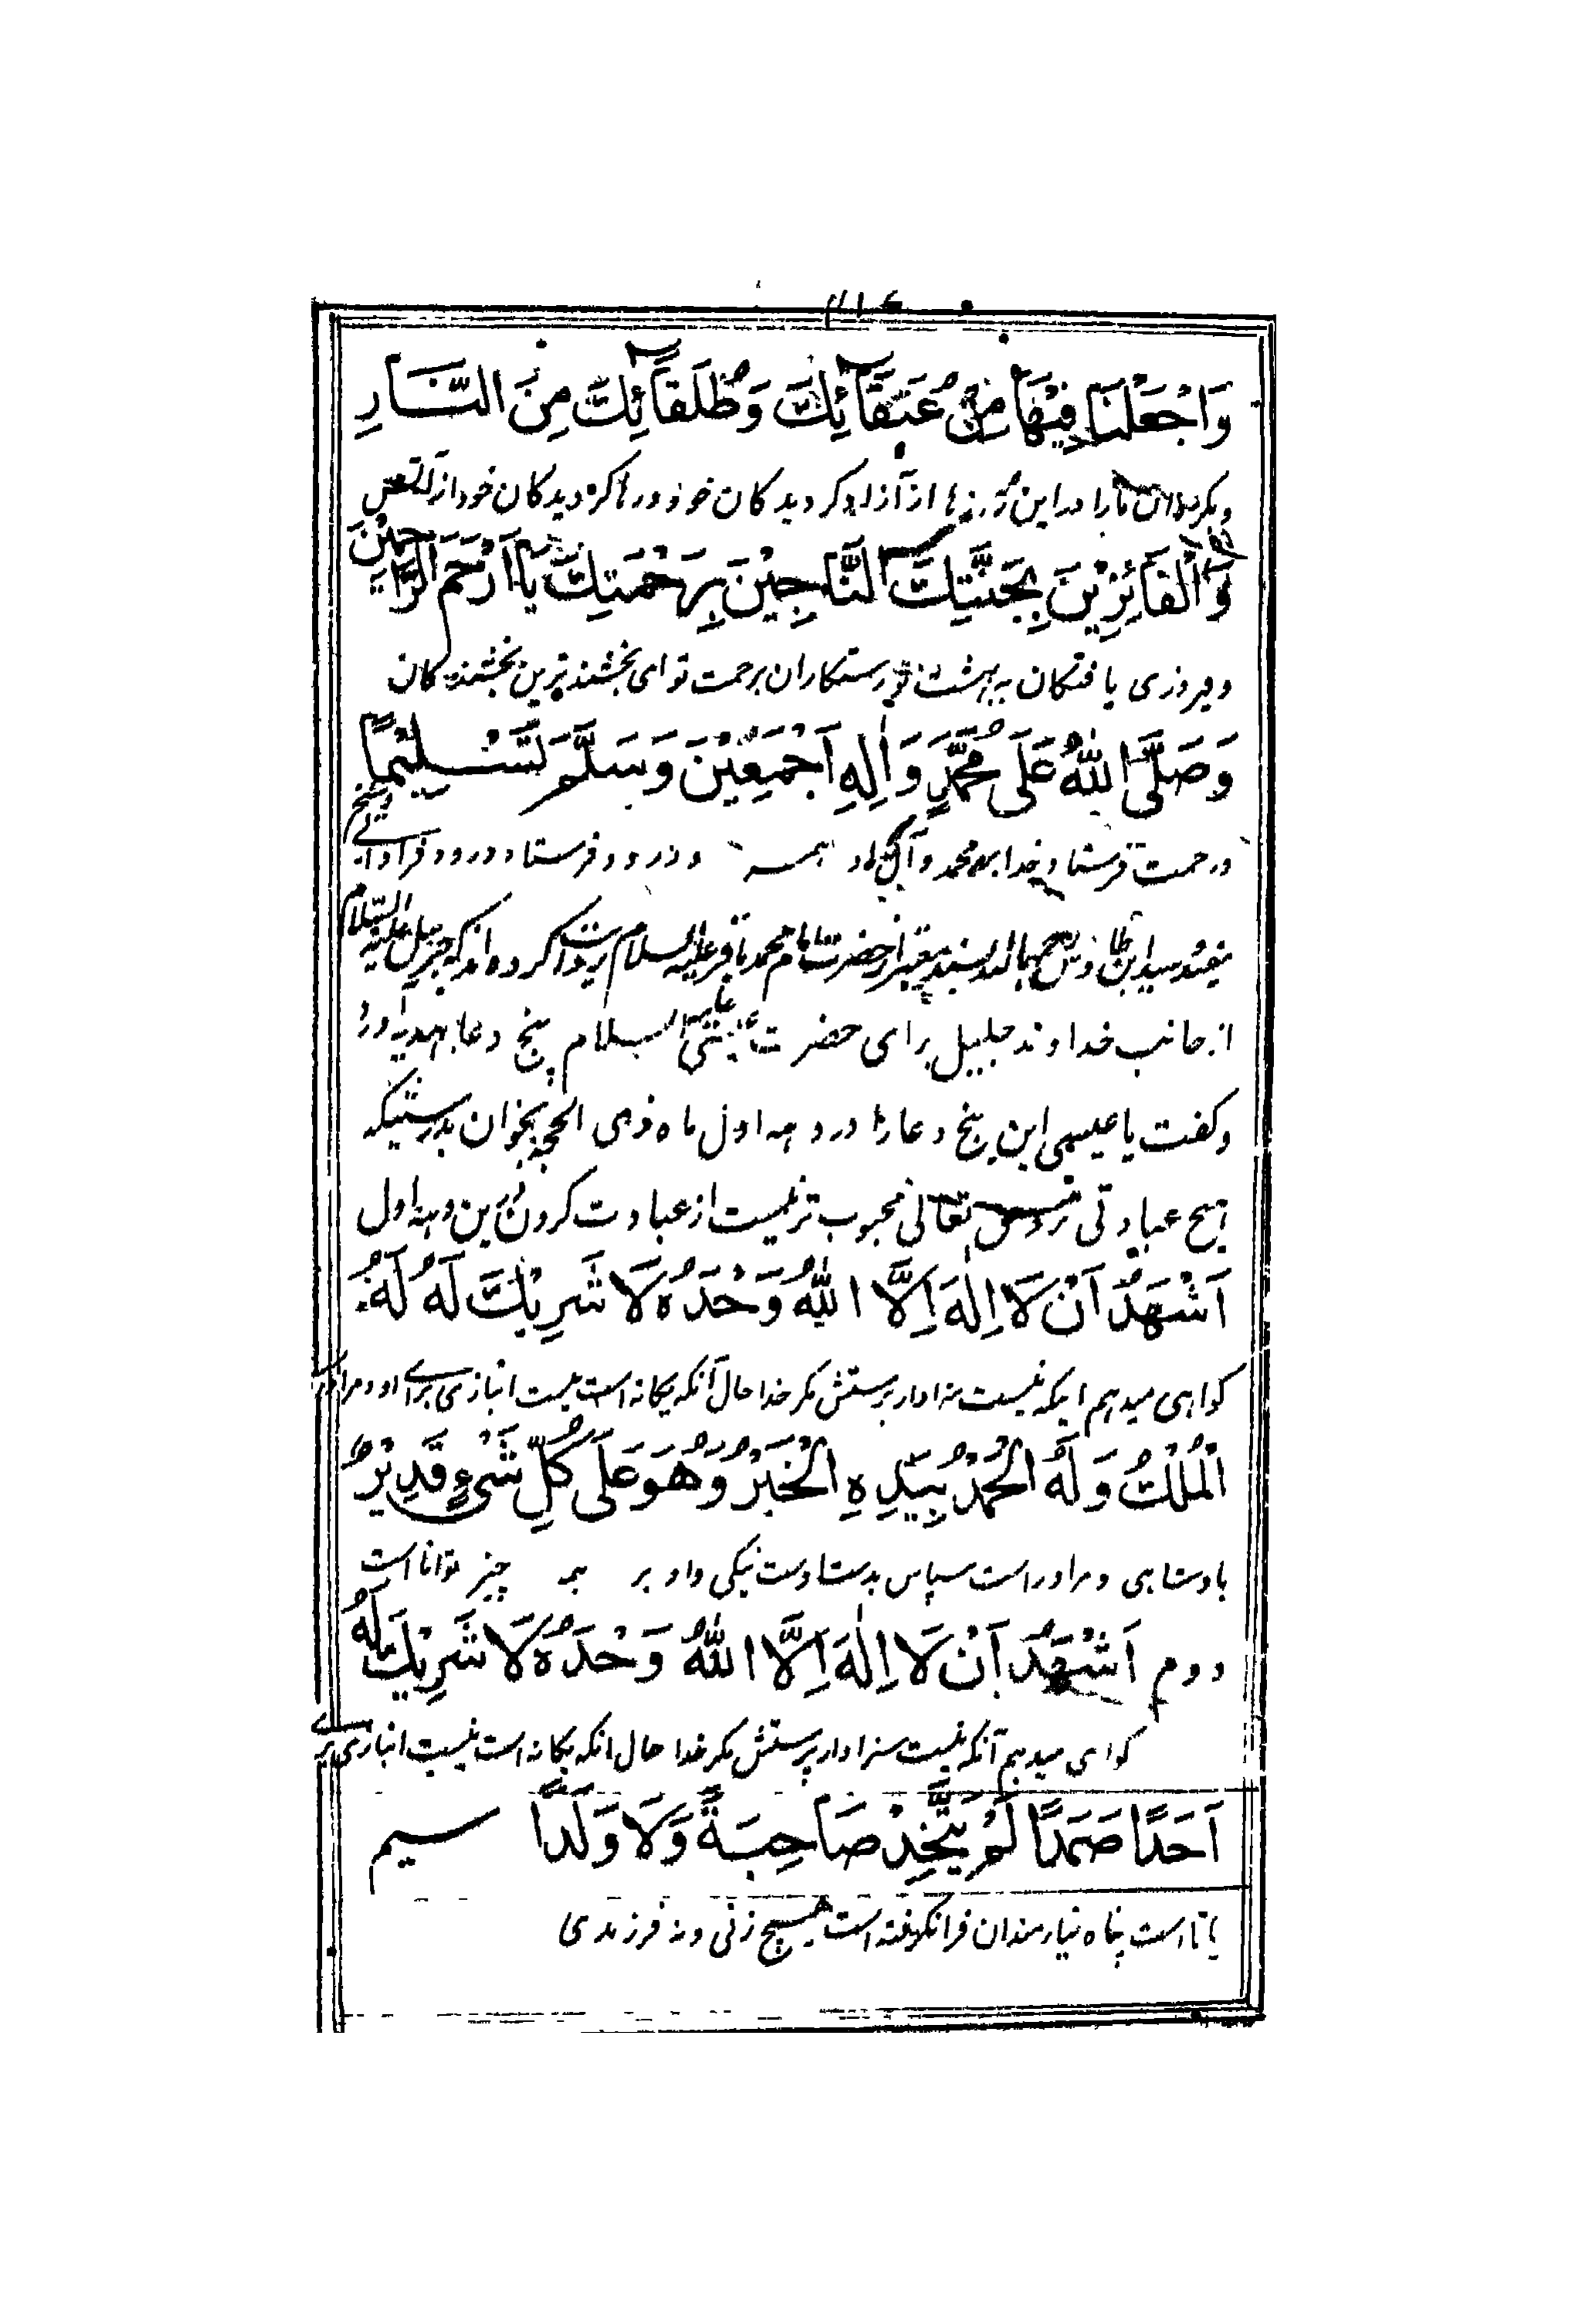 وَاجْعَلْنَا فِيْهَا مِنْ عُتَقَآئِكَ وَطُلَقَآئِكَ مِنَ النَّارِ
مارا در این روزها از آزاد کردیدکان خود و رها کردیدکان خود از آتش
وَالْفَآئِزِيْنَ بِجَنَّتِكَ النَّاجِيْنَ بِرَحْمَتِكَ يَا اَرْحَمَ الرَّاحِمِيْنَ
و فیروزی یافتکان به بهشت تو رستکاران برحمت تو ای بخشنده‌ترین بخشندکان
وَصَلَّى اللهُ عَلَى مُحَمَّدٍ وَاٰلِهِ اَجْمَعِيْنَ وَسَلَّمَ تَسْلِيْمًا
و رحمت فرستاد خدا بر محمد و آل او همه و درود فرستاد درود فرستادنی
سید ابن طاوس بسند معتبر از حضرت امام محمد باقر علیه السلام روایت کرده اند که جبرئیل علیه السلام
از جانب خداوند جلیل برای حضرت عیسی علیه السلام پنج دعا بهدیه آورد
و کفت یا عیسی این پنج دعا را در دهه اول ماه ذی الحجه بخوان بدرستیکه
هیچ عبادتی نزد حق تعالی محبوب تر نیست از عبادت کردن در این دهه اول
اَشْهَدُ اَنْ لَا اِلٰهَ اِلَّا اللهُ وَحْدَهُ لَا شَرِيْكَ لَهُ لَهُ
کواهی میدهم اینکه نیست سزاوار پرستش مکر خدا حال آنکه یکانه است نیست انبازی برای او و مر او را
الْمُلْكُ وَلَهُ الْحَمْدُ بِيَدِهِ الْخَيْرُ وَهُوَ عَلَى كُلِّ شَيْءٍ قَدِيْرٌ
بادشاهی و مر او راست سپاس بدست اوست نیکی و او بر همه چیز توانا است
دوم اَشْهَدُ اَنْ لَا اِلٰهَ اِلَّا اللهُ وَحْدَهُ لَا شَرِيْكَ لَهُ
کواهی میدهم آنکه نیست سزاوار پرستش مکر خدا حال انکه یکانه است نیست انبازی
اَحَدًا صَمَدًا لَمْ يَتَّخِذْ صَاحِبَةً وَلَا وَلَدًا سیم
یکتا است پناه نیازمندان فرا نکرفته است هیچ زنی و نه فرزندی